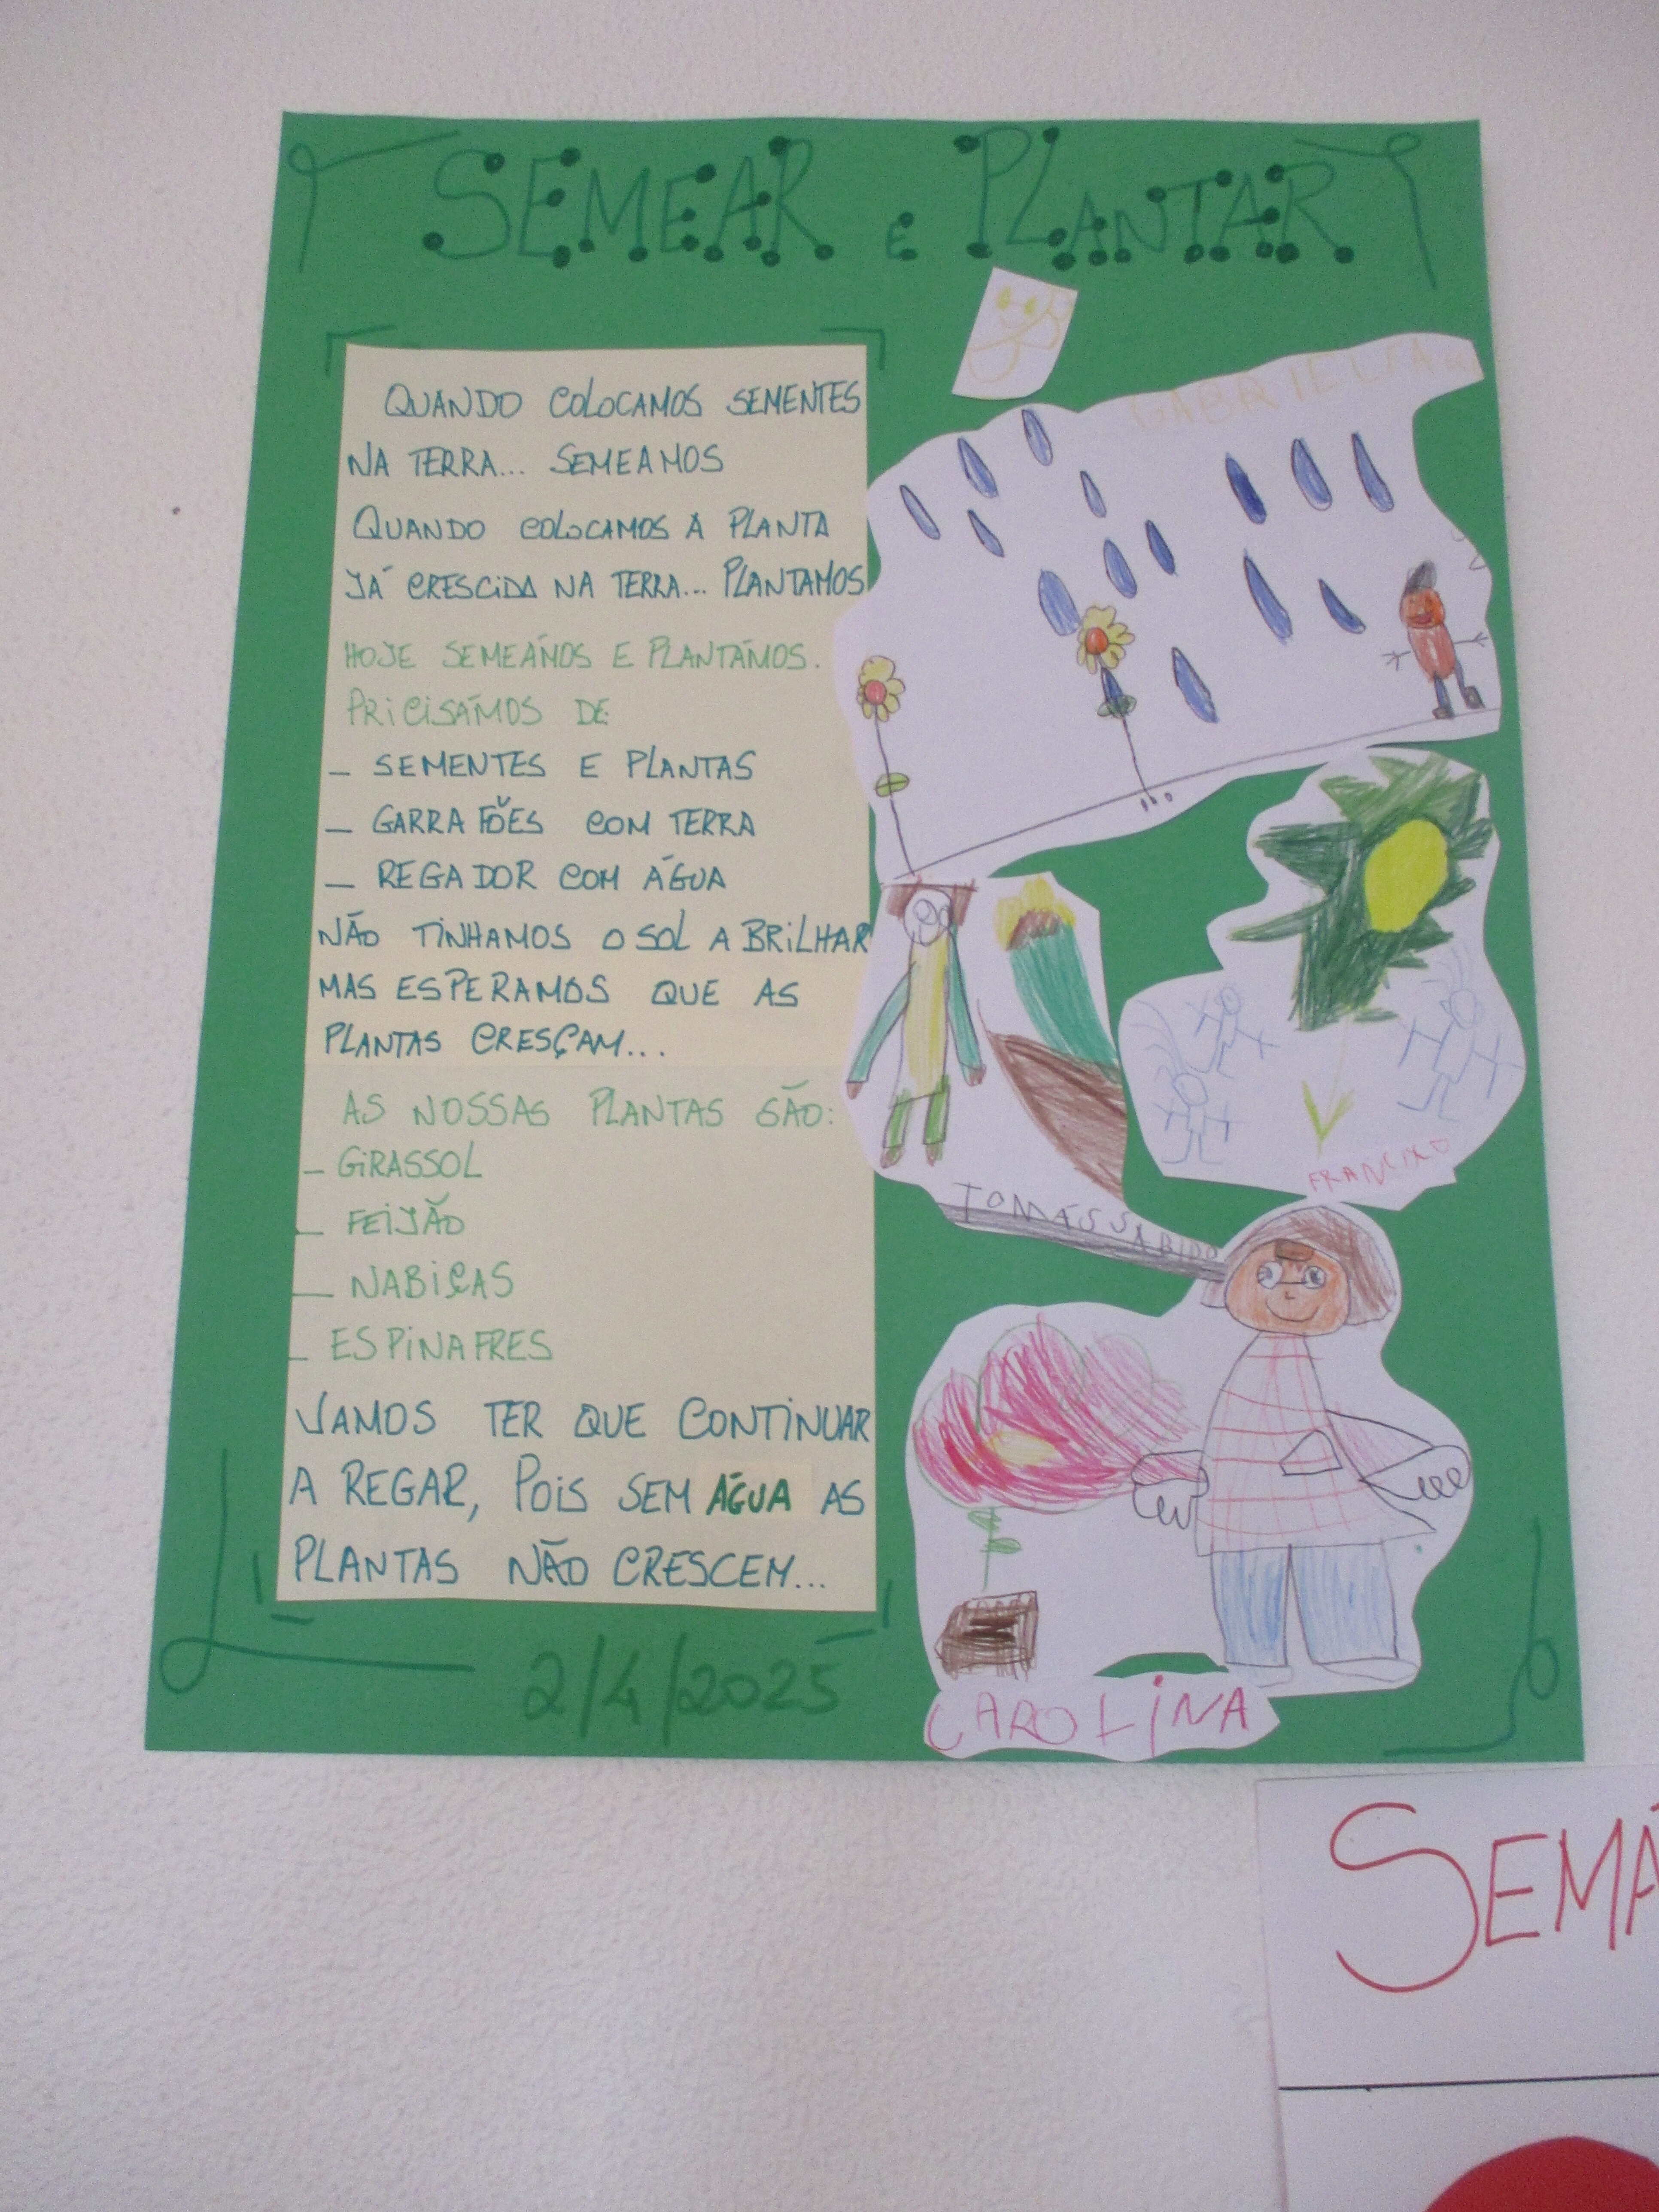 SEMEAR E PLANTAR
QUANDO COLOCAMOS SEMENTES
NA TERRA... SEMEAMOS
QUANDO COLOCAMOS A PLANTA
JÁ CRESCIDA NA TERRA... PLANTAMOS
HOJE SEMEÁMOS E PLANTÁMOS.
PRICISÁMOS DE
_ SEMENTES E PLANTAS
_ GARRAFÕES COM TERRA
_ REGADOR COM ÁGUA
NÃO TINHAMOS O SOL A BRILHAR
MAS ESPERAMOS QUE AS
PLANTAS CRESÇAM...
AS NOSSAS PLANTAS SÃO:
_ GIRASSOL
_ FEIJÃO
_ NABIÇAS
_ ESPINAFRES
VAMOS TER QUE CONTINUAR
A REGAR, POIS SEM ÁGUA AS
PLANTAS NÃO CRESCEM...
2/4/2025
TOMÁS SABIDO
CAROLINA
SEMÁ